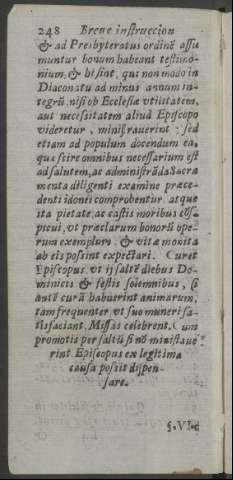 248 Breue instruccion
& ad Presbyteratus ordinē assu
muntur bonum habeant testimo-
nium, & hi sint, qui non modo in
Diaconatu ad minus annum in-
tegrū, nisi ob Ecclesiæ vtilitatem,
aut necessitatem aliud Episcopo
videretur, ministrauerint: sed
etiam ad populum docendum ea,
quæ scire omnibus necessarium est
ad salutem, ac administrāda Sacra
menta diligenti examine præce-
denti idonei comprobentur atque
ita pietate, ac castis moribus cōs-
picui, vt præclarum bonorū ope-
rum exemplum, & vitæ monita
ab eis possint expectari. Curet
Episcopus vt ij saltē diebus Do-
minicis & festis solemnibus, si
autē curā habuerint animarum,
tam frequenter vt suo muneri sa-
tisfaciant, Missas celebrent. Cum
promotis per saltū si nō ministraue
rint Episcopus ex legitima
causa possit dispen-
sare.
§. VI. d